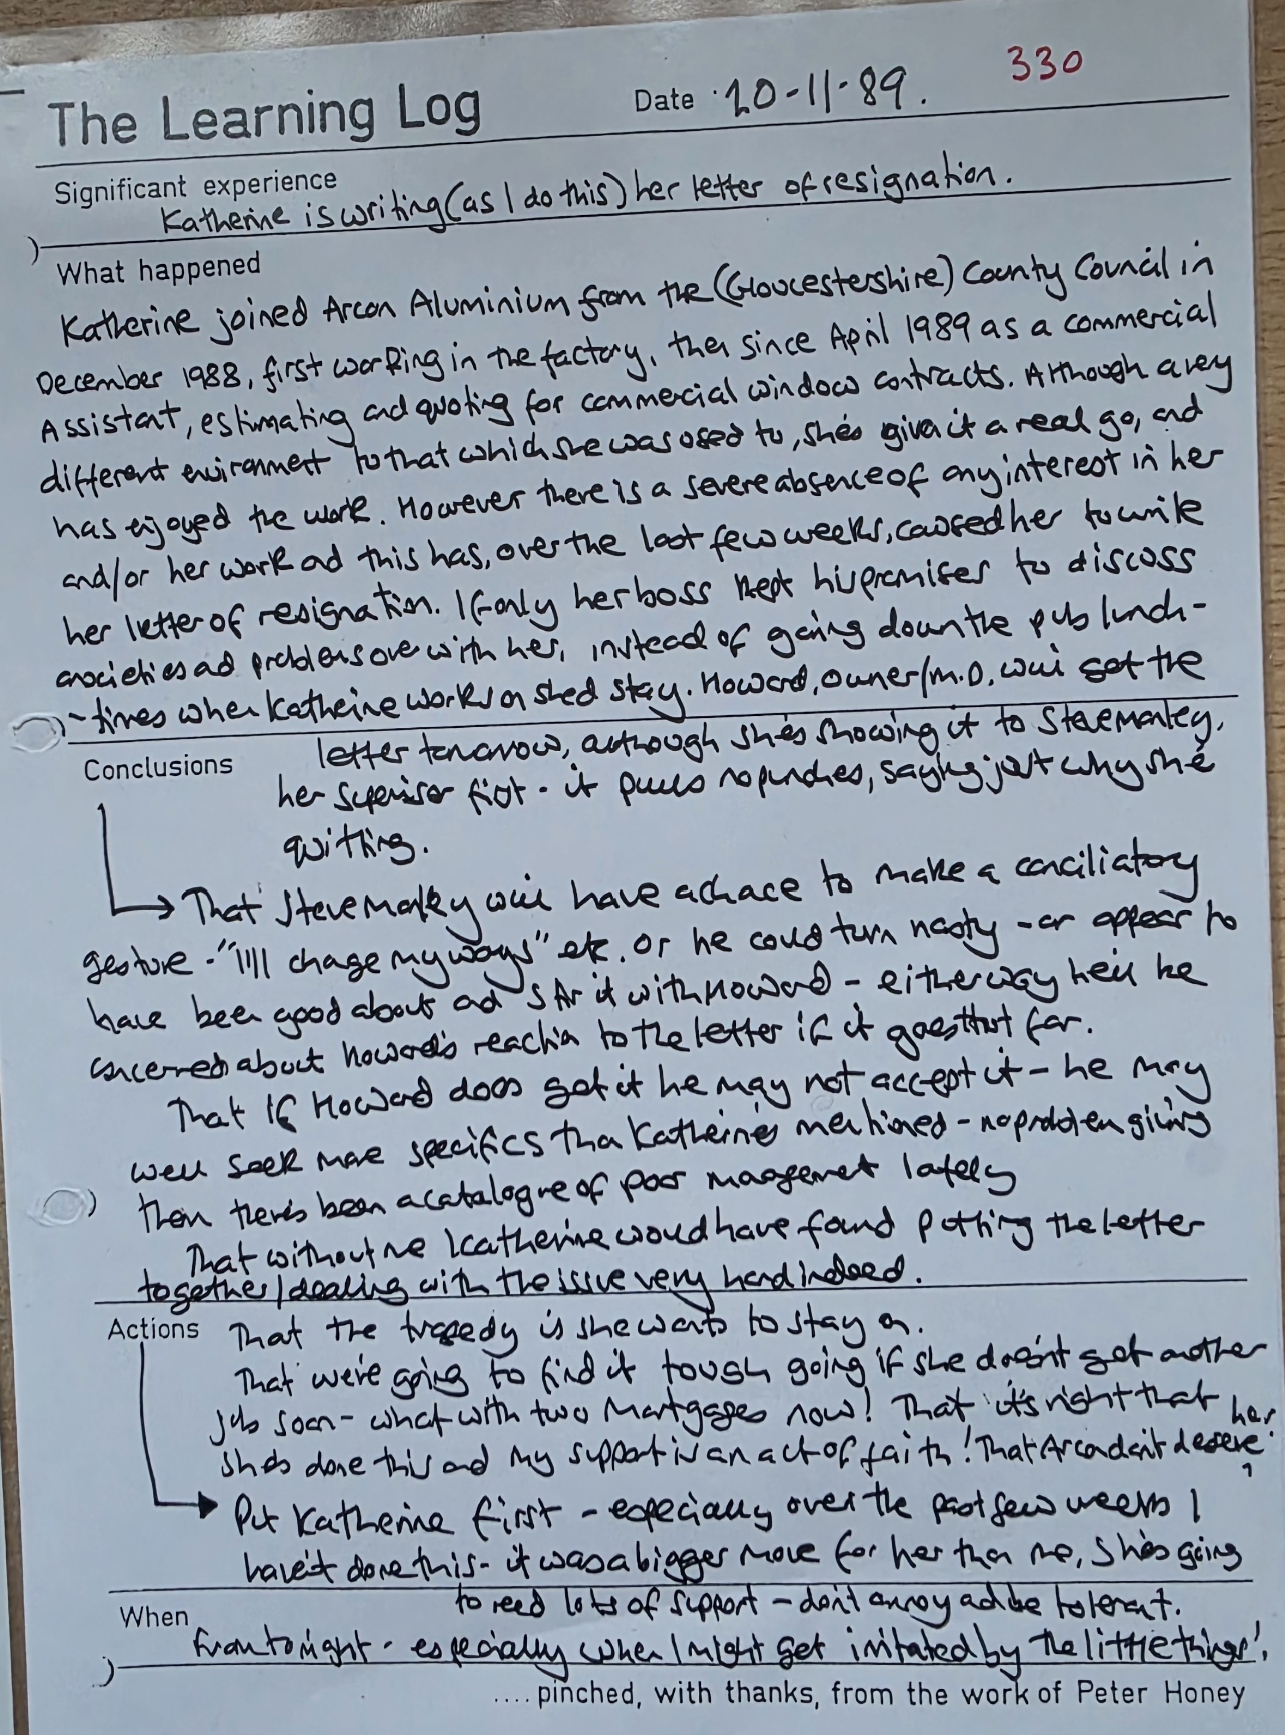 330
The Learning Log
Date 20-11-89.
Significant experience
Katherine is writing (as I do this) her letter of resignation.
What happened
Katherine joined Arcon Aluminium from the (Gloucestershire) County Council in
December 1988, first working in the factory, then since April 1989 as a commercial
Assistant, estimating and quoting for commercial window contracts. Although a very
different environment to that which she was used to, she's given it a real go, and
has enjoyed the work. However there is a severe absence of any interest in her
and/or her work and this has, over the last few weeks, caused her to write
her letter of resignation. If only her boss kept his promises to discuss
anxieties and problems over with her, instead of going down the pub lunch-
-times when Katherine works on she'd stay. Howard, owner/M.D, will get the
letter tomorrow, although she's showing it to Steve Manley,
her superior first - it pulls no punches, saying just why she
quitting.
Conclusions
That Steve Manley will have a chance to make a conciliatory
gesture - "I'll change my ways" etc. Or he could turn nasty - or appear to
have been good about and it with Howard - either way he'll be
concerned about Howard's reaction to the letter if it goes that far.
That if Howard does get it he may not accept it - he may
well seek more specifics than Katherine's mentioned - no problem giving
them there's been a catalogue of poor management lately
That without me Katherine would have found putting the letter
together/dealing with the issue very hard indeed.
Actions
That the tragedy is she wants to stay on.
That we're going to find it tough going if she doesn't get another
job soon - what with two mortgages now! That it's right that
she's done this and my support is an act of faith! That Arcon don't deserve her
Put Katherine first - especially over the past few weeks I
haven't done this - it was a bigger move for her than me, she's going
to need lots of support - don't annoy and be tolerant.
When
From tonight - especially when I might get irritated by 'the little things'.
.... pinched, with thanks, from the work of Peter Honey